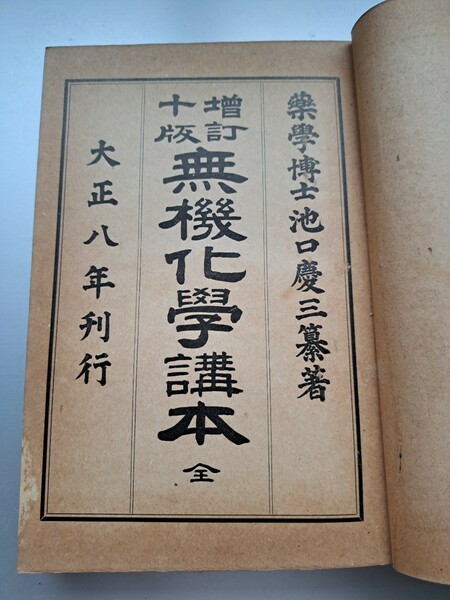 藥學博士池口慶三纂著
增訂
十版
無機化學講本 全
大正八年刊行